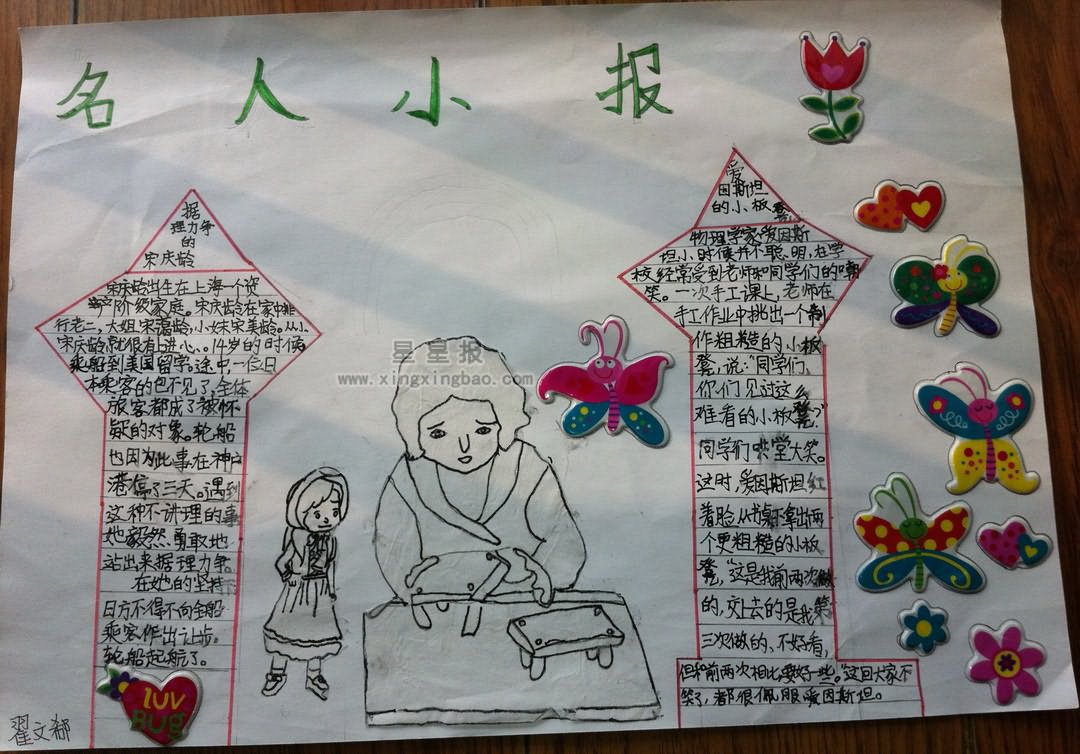 名人小报
据
理力争
的
宋庆龄
宋庆龄出生在上海一个资
产阶级家庭。宋庆龄在家中排
行老二。大姐宋霭龄,小妹宋美龄。从小
宋庆龄就很有上进心。14岁的时候
乘船到美国留学。途中一位日
本乘客的包不见了,全体
旅客都成了被怀
疑的对象。轮船
也因为此事在神户
港停了三天。遇到
这种不讲理的事
她毅然勇敢地
站出来据理力争。
在她的坚持下
日方不得不向全船
乘客作出让步。
轮船起航了。
luv
Bug
翟文郗
星星报
www.xingxingbao.com
爱
因斯坦
的小板凳
物理学家爱因斯
坦小时候并不聪明,在学
校经常受到老师和同学们的嘲
笑。一次手工课上,老师在
手工作业中挑出一个制
作粗糙的小板
凳,说:“同学们,
你们见过这么
难看的小板凳?”
同学们哄堂大笑。
这时,爱因斯坦红
着脸从书桌下拿出两
个更粗糙的小板
凳,“这是我前两次做
的,交上去的是我第
三次做的、不好看,
但和前两次相比要好一些。”这回大家不
笑了,都很佩服爱因斯坦。